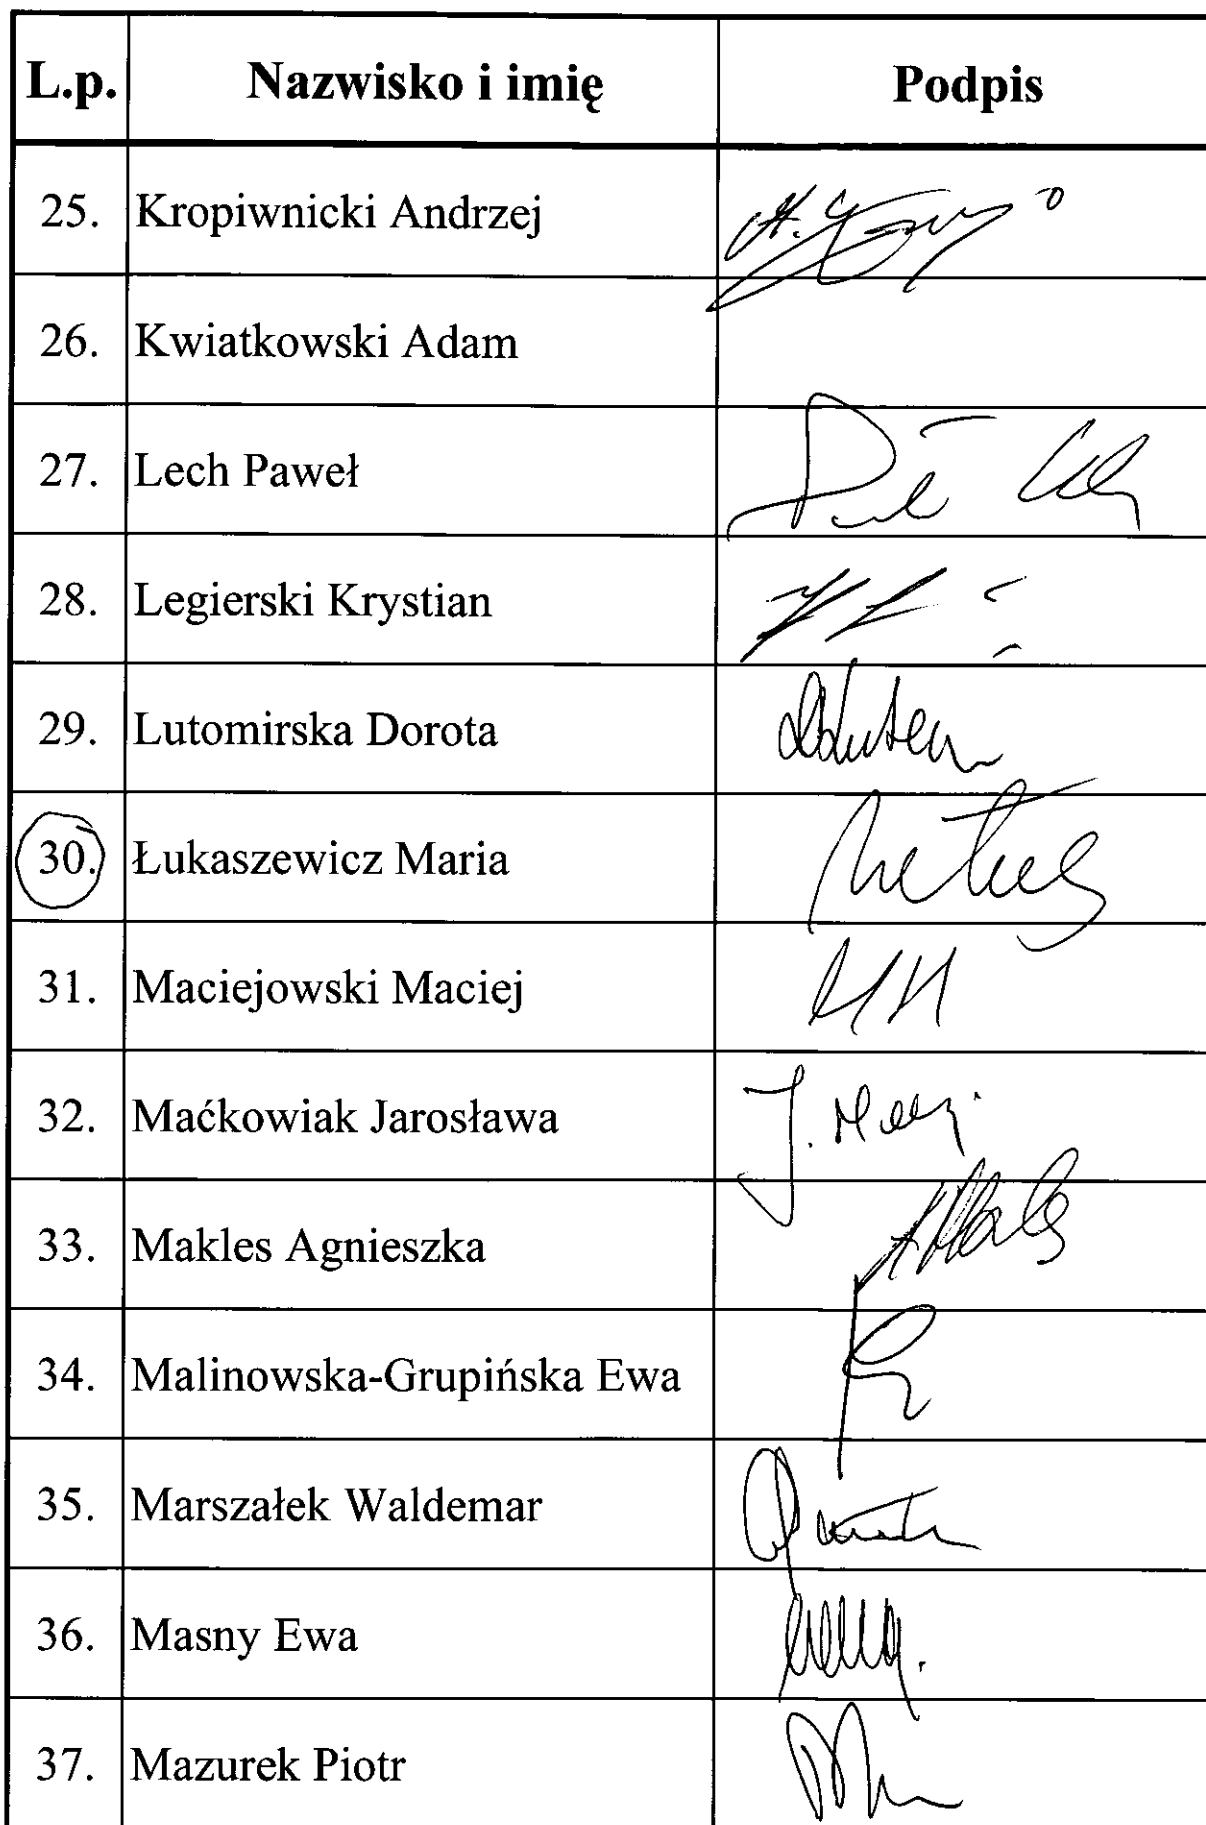 L.p. Nazwisko i imię Podpis
25. Kropiwnicki Andrzej
26. Kwiatkowski Adam
27. Lech Paweł
28. Legierski Krystian
29. Lutomirska Dorota
30. Łukaszewicz Maria
31. Maciejowski Maciej
32. Maćkowiak Jarosława
33. Makles Agnieszka
34. Malinowska-Grupińska Ewa
35. Marszałek Waldemar
36. Masny Ewa
37. Mazurek Piotr